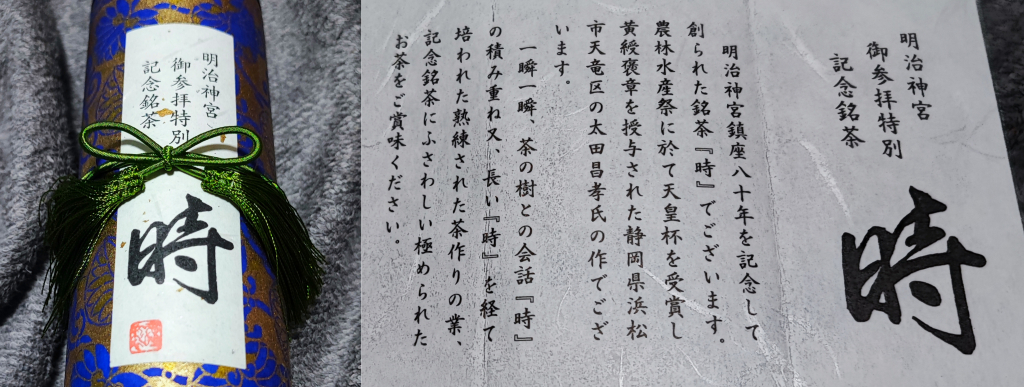 明治神宮
御参拝特別
記念銘茶
時
明治神宮
御参拝特別
記念銘茶
時
明治神宮鎮座八十年を記念して
創られた銘茶『時』でございます。
農林水産祭に於て天皇杯を受賞し
黄綬褒章を授与された静岡県浜松
市天竜区の太田昌孝氏の作でござ
います。
一瞬一瞬、茶の樹との会話『時』
の積み重ね又、長い『時』を経て
培われた熟練された茶作りの業、
記念銘茶にふさわしい極められた
お茶をご賞味ください。